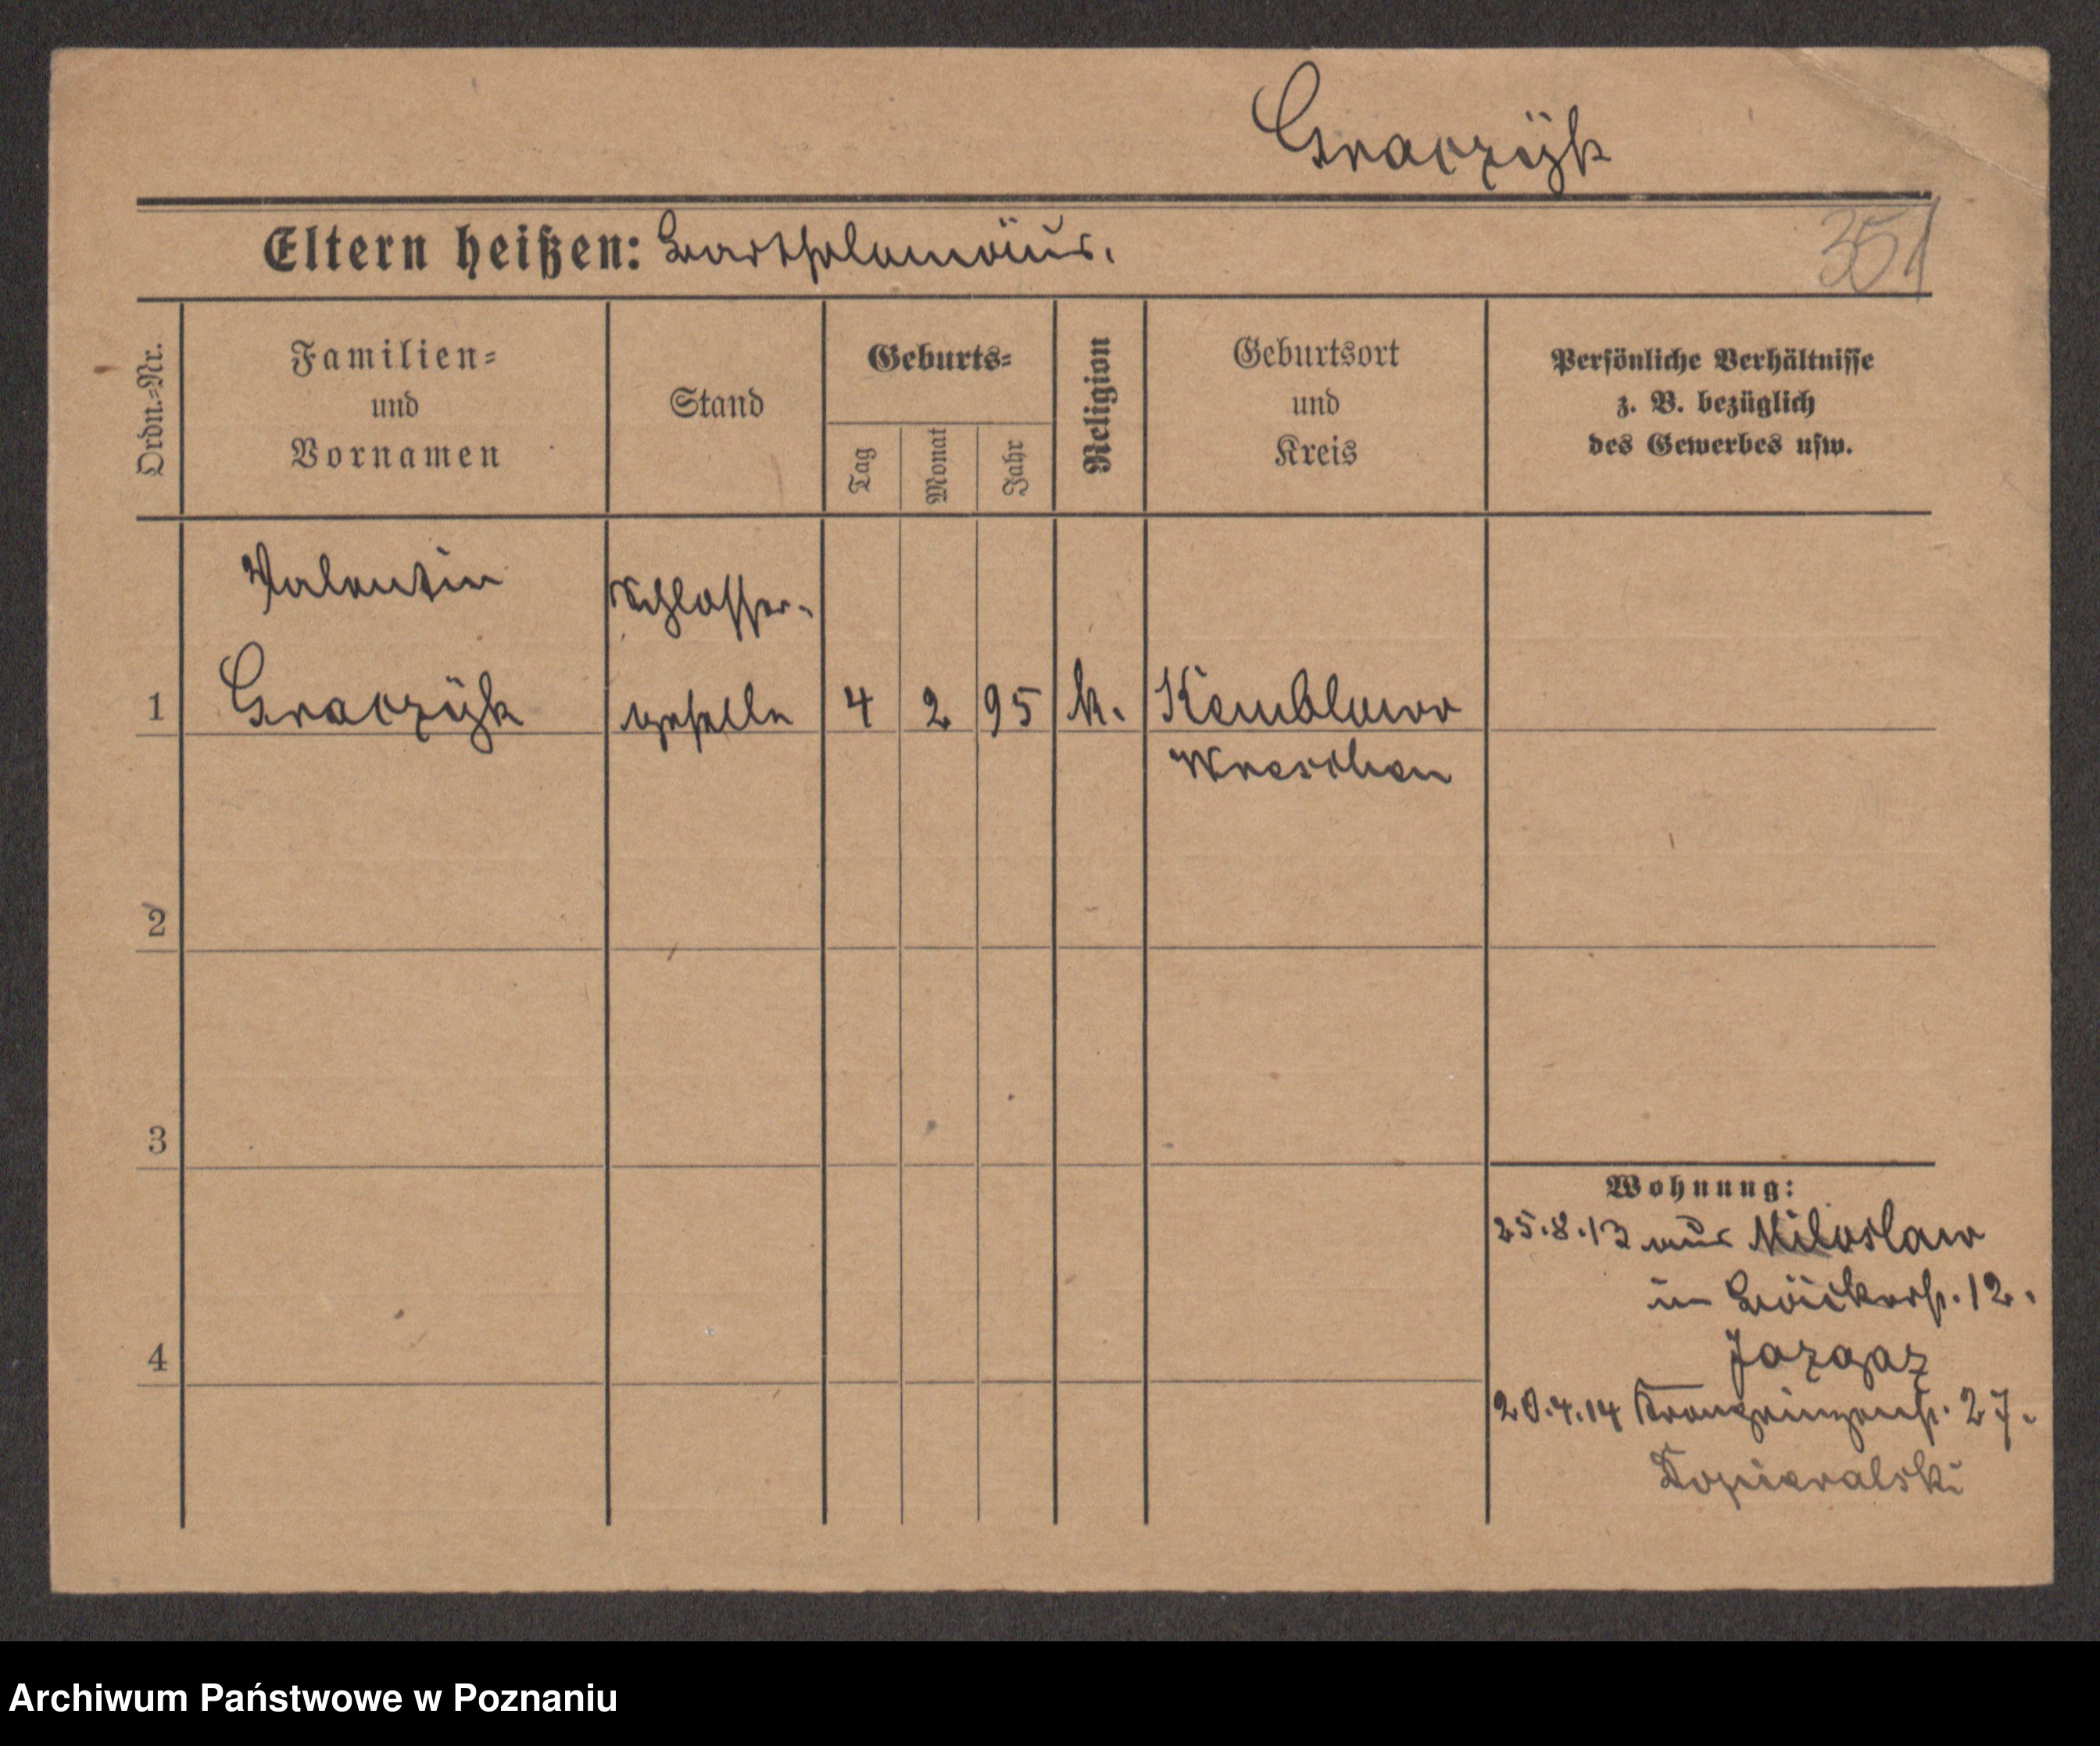 Graczÿk
Eltern heißen: Bartholomäus.
351
Ordn.=Nr.
Familien=
und
Vornamen
Stand
Geburts=
Tag
Monat
Jahr
Religion
Geburtsort
und
Kreis
Persönliche Verhältnisse
z. B. bezüglich
des Gewerbes usw.
Valentin Schlosser-
1 Graczÿk geselle 4 2 95 k. Kemblowo
Wreschen
2
3
Wohnung:
25.8.13 aus Miloslaw
in Bäckerstr. 12.
4
Jazgaz
20.4.14 Kronprinzenstr. 27.
Kopieralski
Archiwum Państwowe w Poznaniu